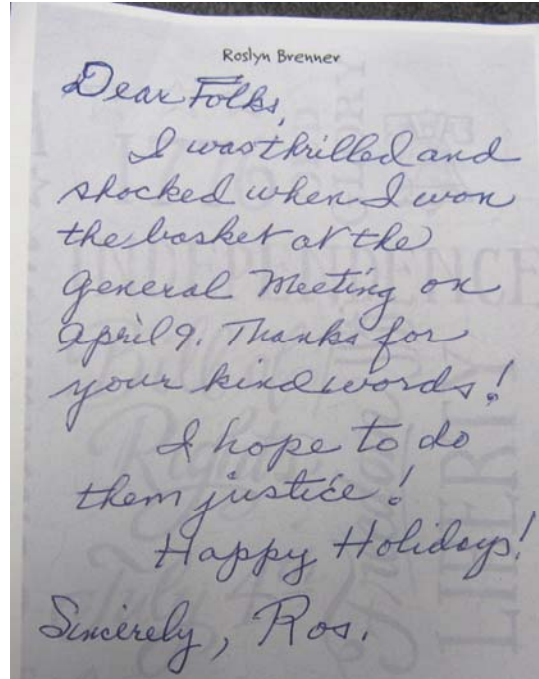 Roslyn Brenner
Dear Folks,
I was thrilled and
shocked when I won
the basket at the
General Meeting on
April 9. Thanks for
your kind words!
I hope to do
them justice!
Happy Holidays!
Sincerely, Ros.
INDEPENDENCE
LIBERTY